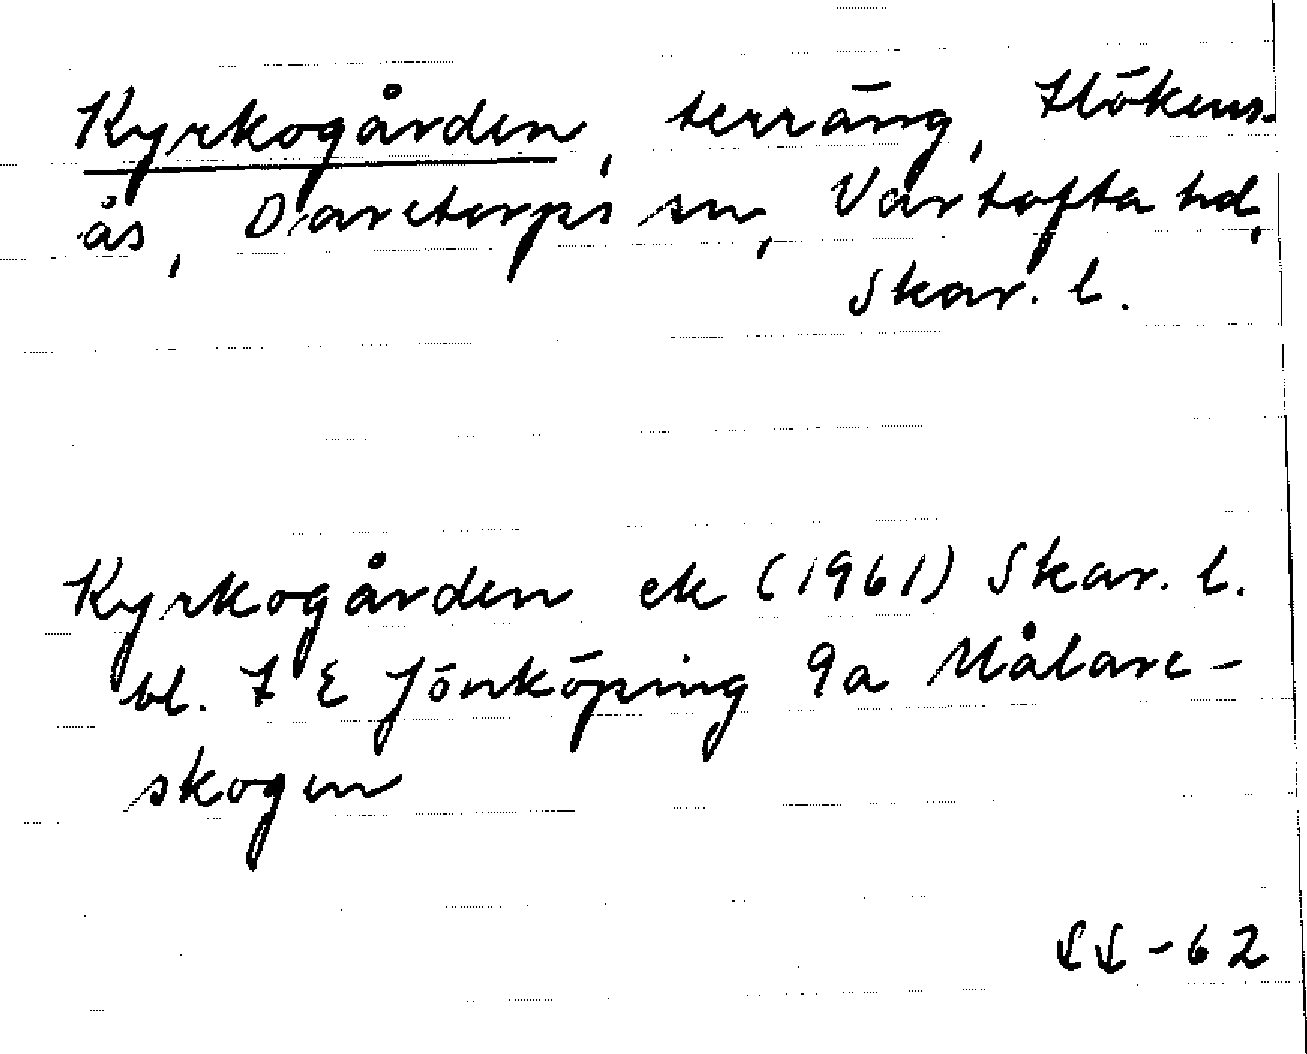 Kyrkogården, terräng, Hökens-
ås, Daretorps sn, Vartofta hd,
Skar. l.
Kyrkogården ek (1961) Skar. l.
bl. 7 E Jönköping 9a Målare-
skogen
-62